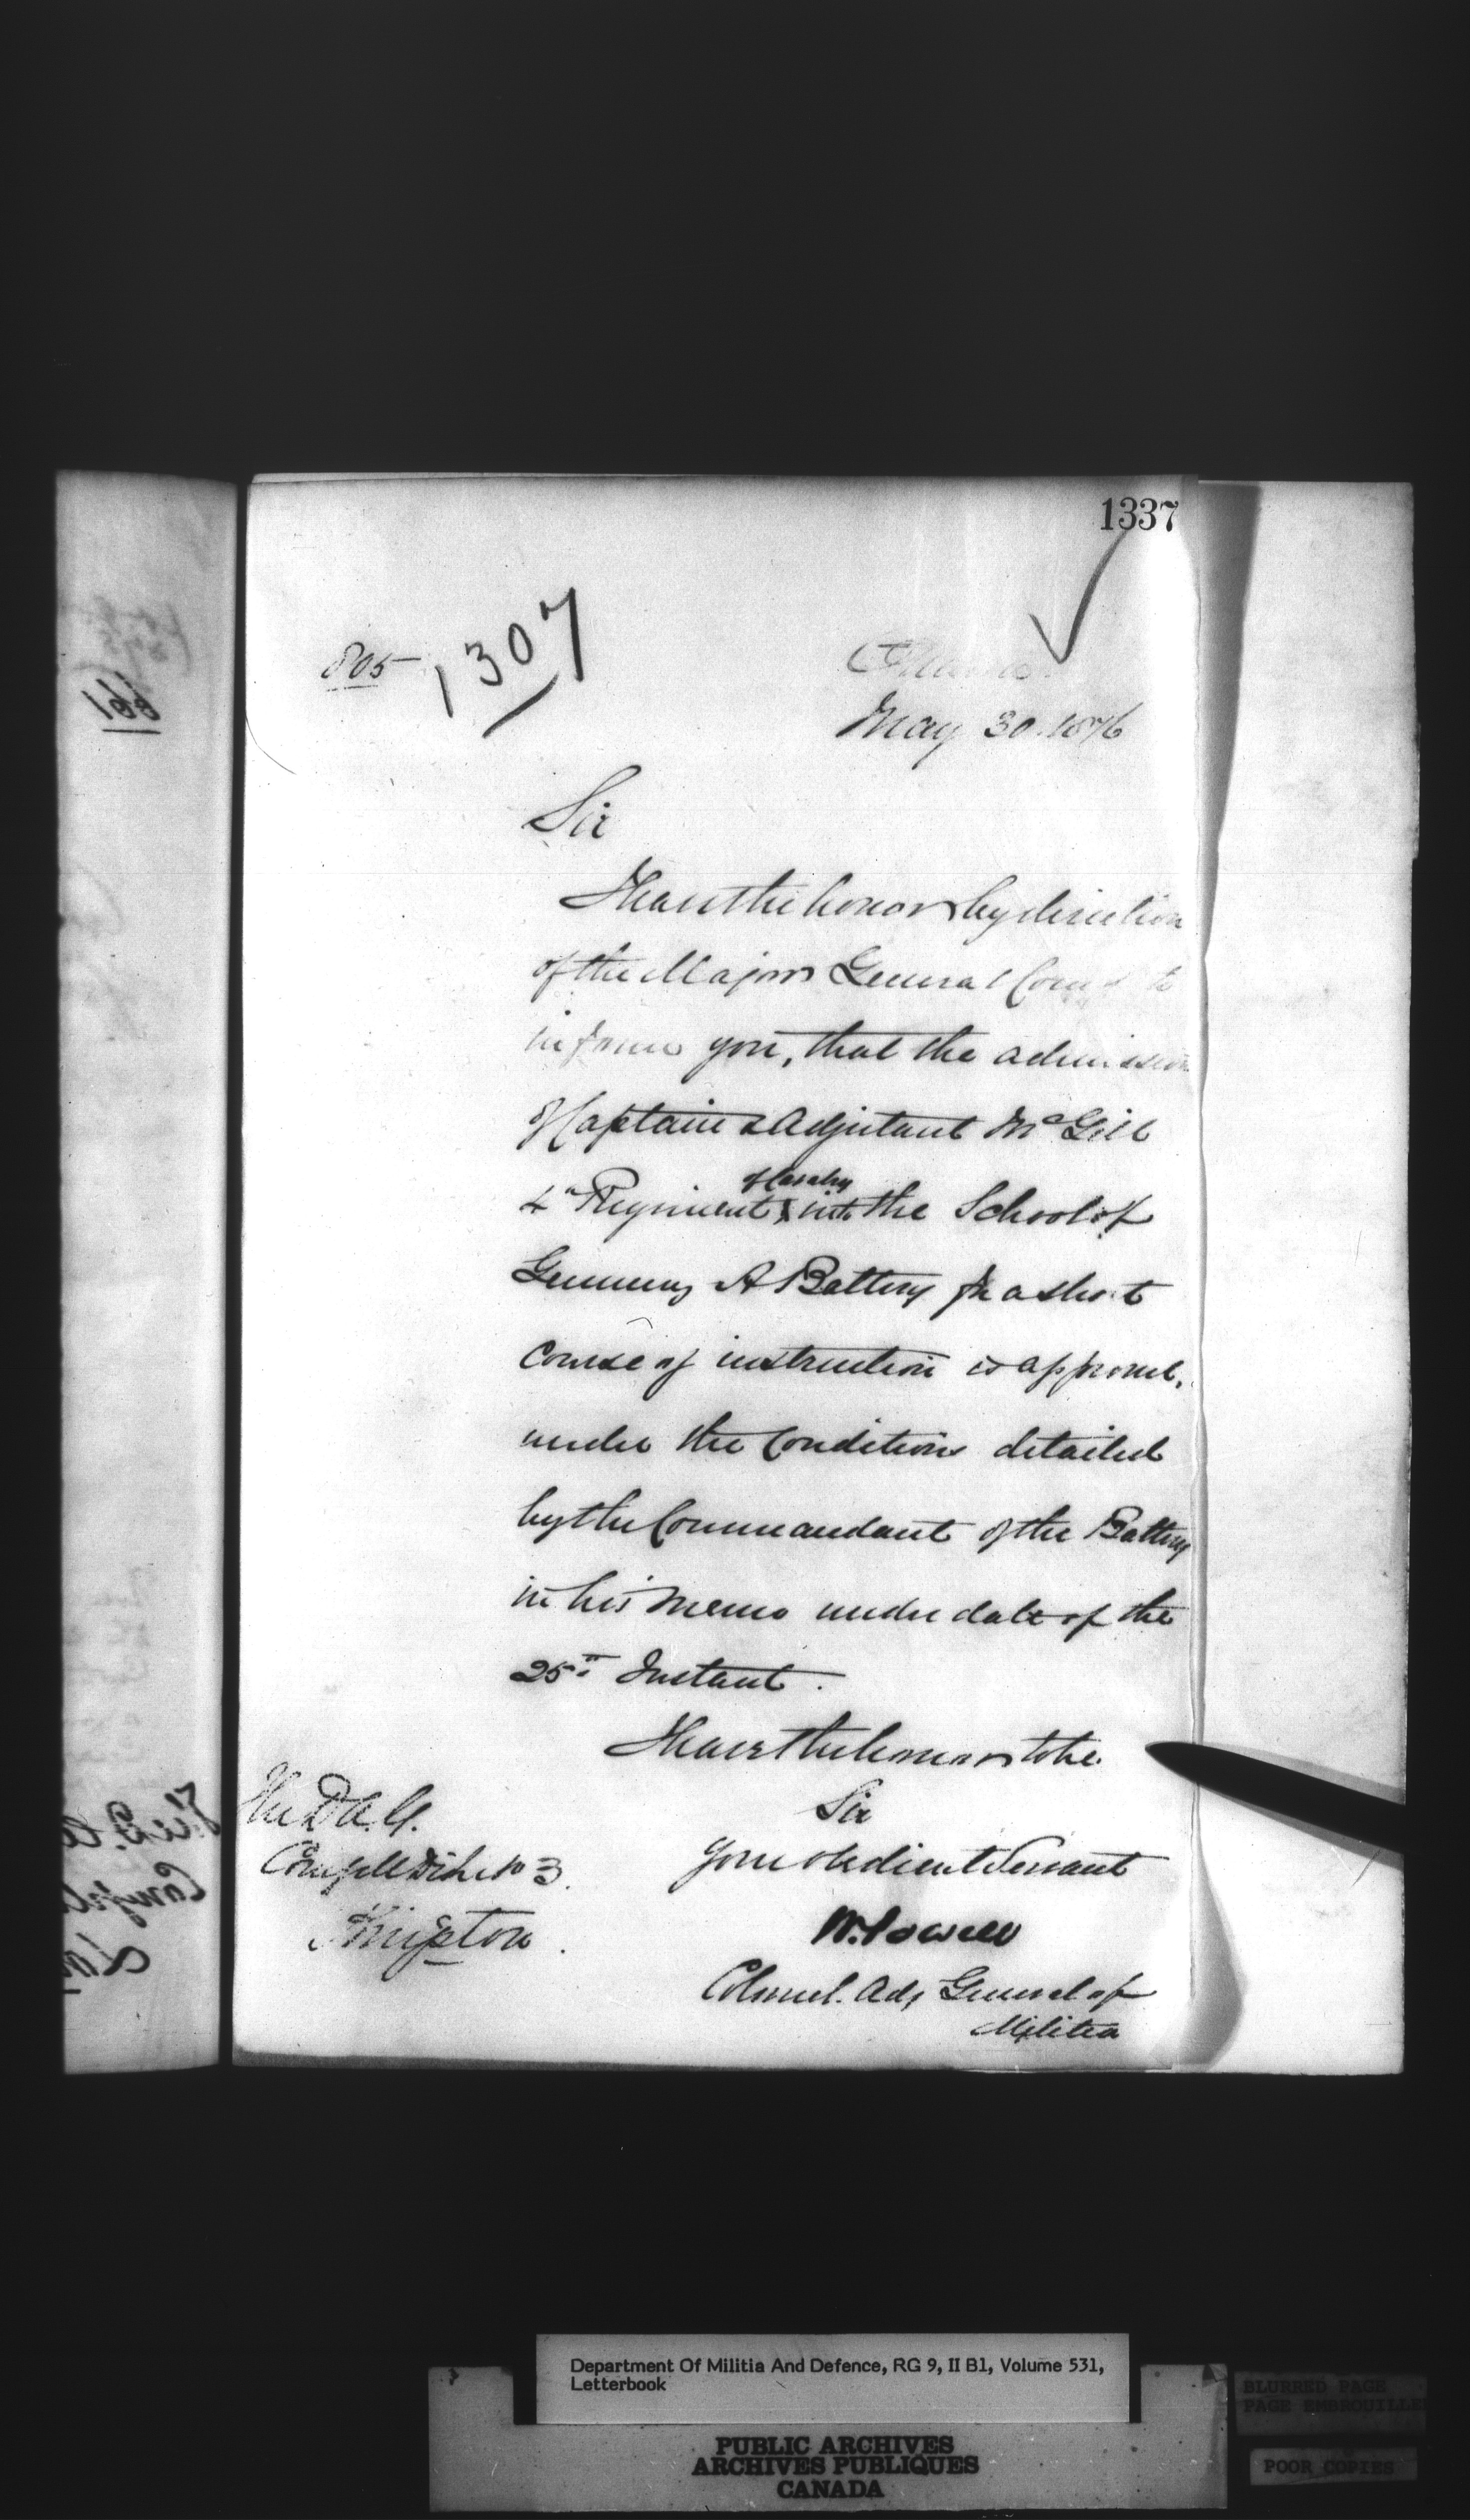 1337
805
1307
Ottawa
May 30. 1876
Sir
I have the honor by direction
of the Major General Comg to
inform you, that the admission
of Captain & Adjutant McGill
of Cavalry
4th Regiment into the School of
Gunnery A Battery for a short
course of instruction is approved,
under the Conditions detailed
by the Commandant of the Battery
in his Memo under date of the
25th Instant.
I have the honor to be
Sir
Your obedient Servant
W. Powell
Colonel. Adj General of
Militia
The D.A.G.
Comg Mil Dist No 3.
Kingston.
166
Department Of Militia And Defence, RG 9, II B1, Volume 531,
Letterbook
PUBLIC ARCHIVES
ARCHIVES PUBLIQUES
CANADA
BLURRED PAGE
PAGE EMBROUILLEE
POOR COPIES